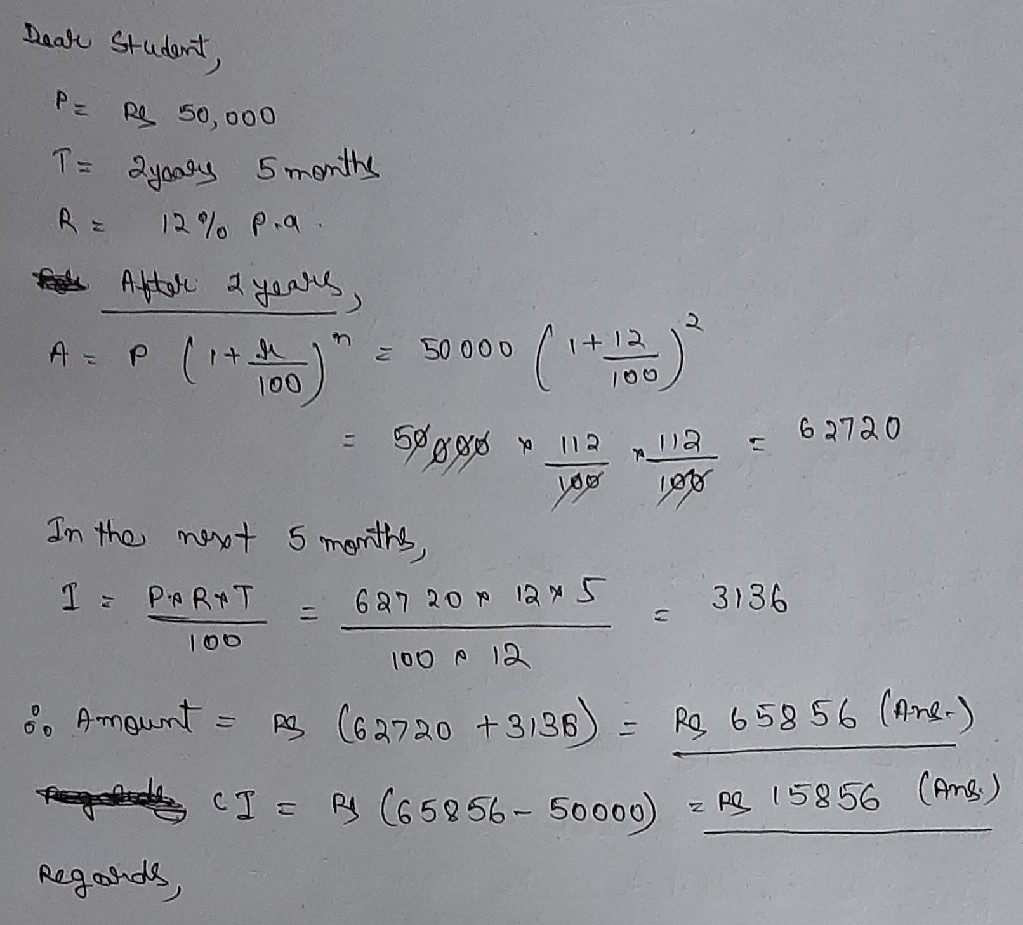 Dear Student,
P = Rs 50,000
T = 2years 5 months
R = 12% p.a.
After 2 years,
A = P (1 + r/100)^n = 50000 (1 + 12/100)^2
= 50000 × 112/100 × 112/100 = 62720
In the next 5 months,
I = P×R×T/100 = 62720 × 12 × 5/100 × 12 = 3136
∴ Amount = Rs (62720 + 3136) = Rs 65856 (Ans.)
CI = Rs (65856 - 50000) = Rs 15856 (Ans.)
Regards,